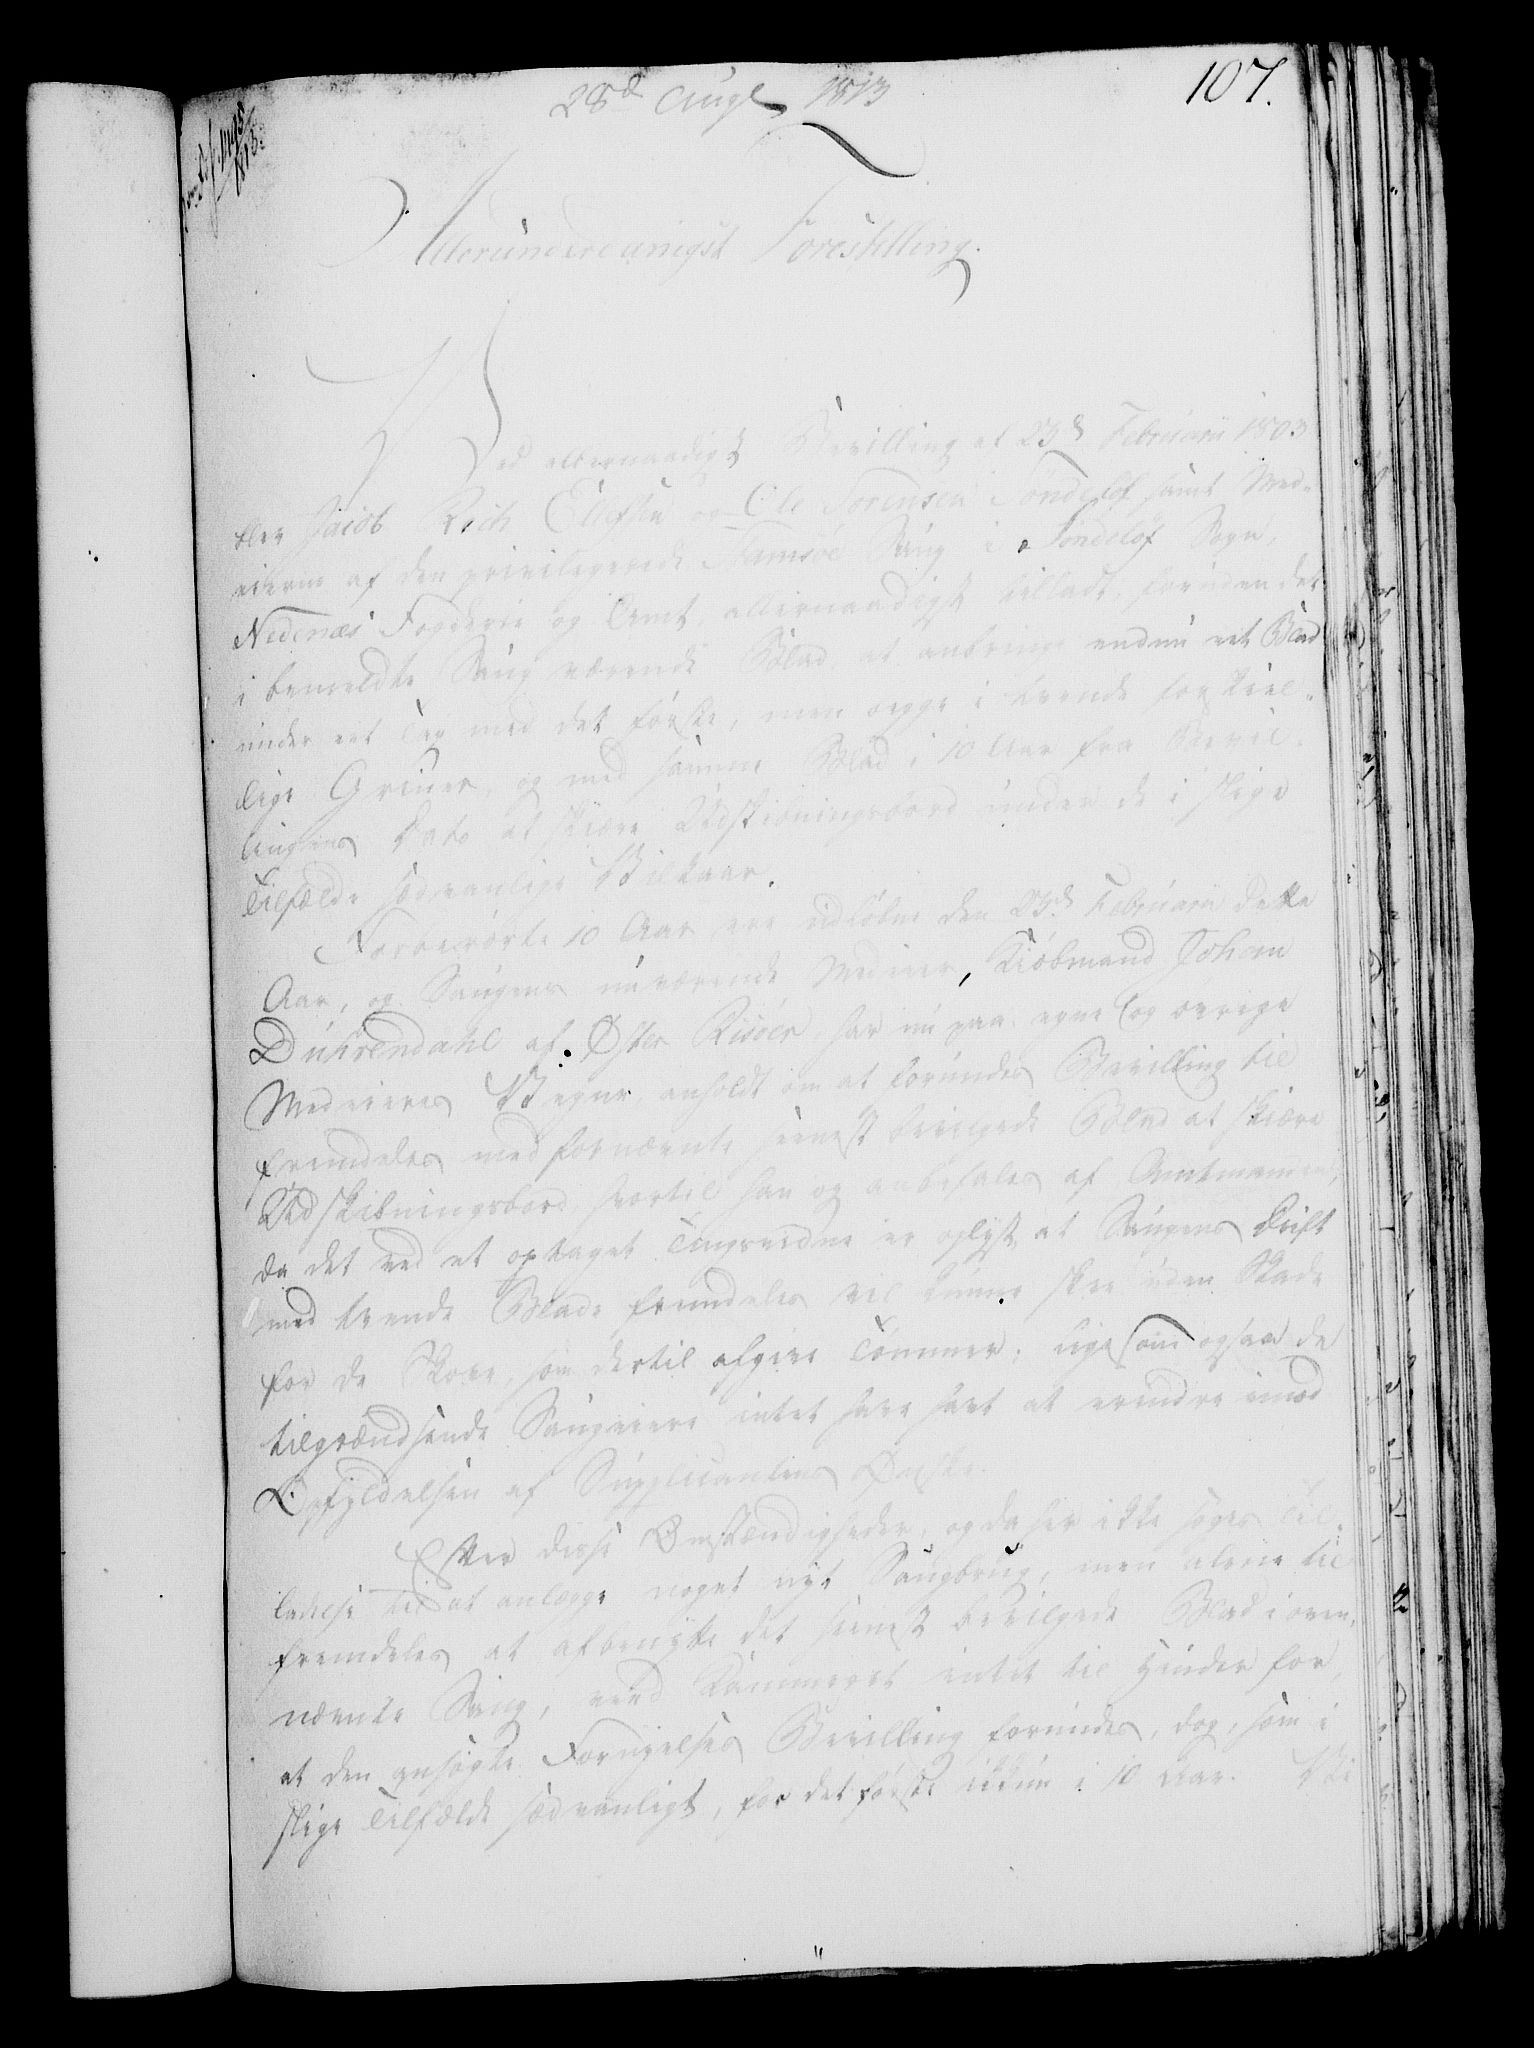 107.
28d Augt 1813
Allerunderdanigst Forestilling.
Ved allernaadigst Bevilling af 23d Februarii 1803
blev Jacob Rich Ellefsen og Ole Sørensen Søndeløf samt Med-
eierne af den privilegerede Ramsøe Saug i Søndeløf Sogn,
Nedenæs Fogderie og Amt allernaadigst tilladt, foruden det
i bemeldte Saug værende Blad, at anbringe endnu eet Blad
under eet Tag med det første, men begge i tvende forskiel-
lige Grinder, og med samme Blad i 10 Aar fra Bevil-
lingens Dato at skiære Udskibningsbord under de i slige
Tilfælde sædvanlige Vilkaar.
Forberørte 10 Aar ere udløbne den 23d Februarii dette
Aar, og Saugens nuværende Medeier, Kiøbmand Johan
Dührendahl af Øster Riisøer, har nu paa egne og øvrige
Medeieres Vegne, anholdt om at forundes Bevilling til
fremdeles med fornævnte seenest bevilgede Blad at skiære
Udskibningsbord, hvortil han og anbefales af Amtmanden,
da det ved et optaget Tingsvidne er oplyst, at Saugens Drift
med tvende Blade fremdeles vil kunne skee uden Skade
for de Skove, som dertil afgive Tømmer; ligesom ogsaa de
tilgrændsende Saugeiere intet have havt at erindre imod
Opfyldelsen af Supplicantens Ønske.
Efter disse Omstændigheder, og da her ikke søges Til-
ladelse til at anlægge noget nyt Saugbrug, men alene til
fremdeles at afbenytte det seenest bevilgede Blad i oven-
nævnte Saug, veed Kammeret intet til Hinder for,
at den ansøgte Fornyelses Bevilling forundes, dog, som i
slige Tilfælde sædvanligt, for det første ikkun i 10 Aar. Vi